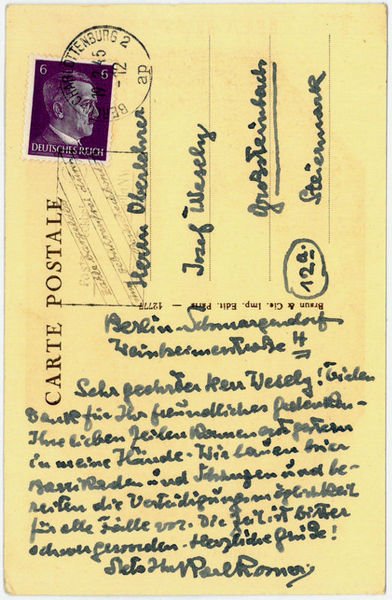 CHARLOTTENBURG 2
45
-12
ap
6 6
DEUTSCHES REICH
CARTE POSTALE
Herrn Oberlehrer
Josef Wesely
Grossteinbach
Steiermark
12a.
Braun & Cie. Imp. Edit. Paris — 12777
Berlin Schmargendorf
Weinheimerstraße 4
Sehr geehrter Herr Wesely! Vielen
Dank für Ihr freundliches Gedenken.
Ihre lieben Zeilen kamen erst gestern
in meine Hände. Wir bauen hier
Barrikaden und Schanzen und be-
reiten die Verteidigungsmöglichkeit
für alle Fälle vor. Die Zeit ist bitter
schwer geworden. Herzliche Grüße!
Stets Ihr Karl